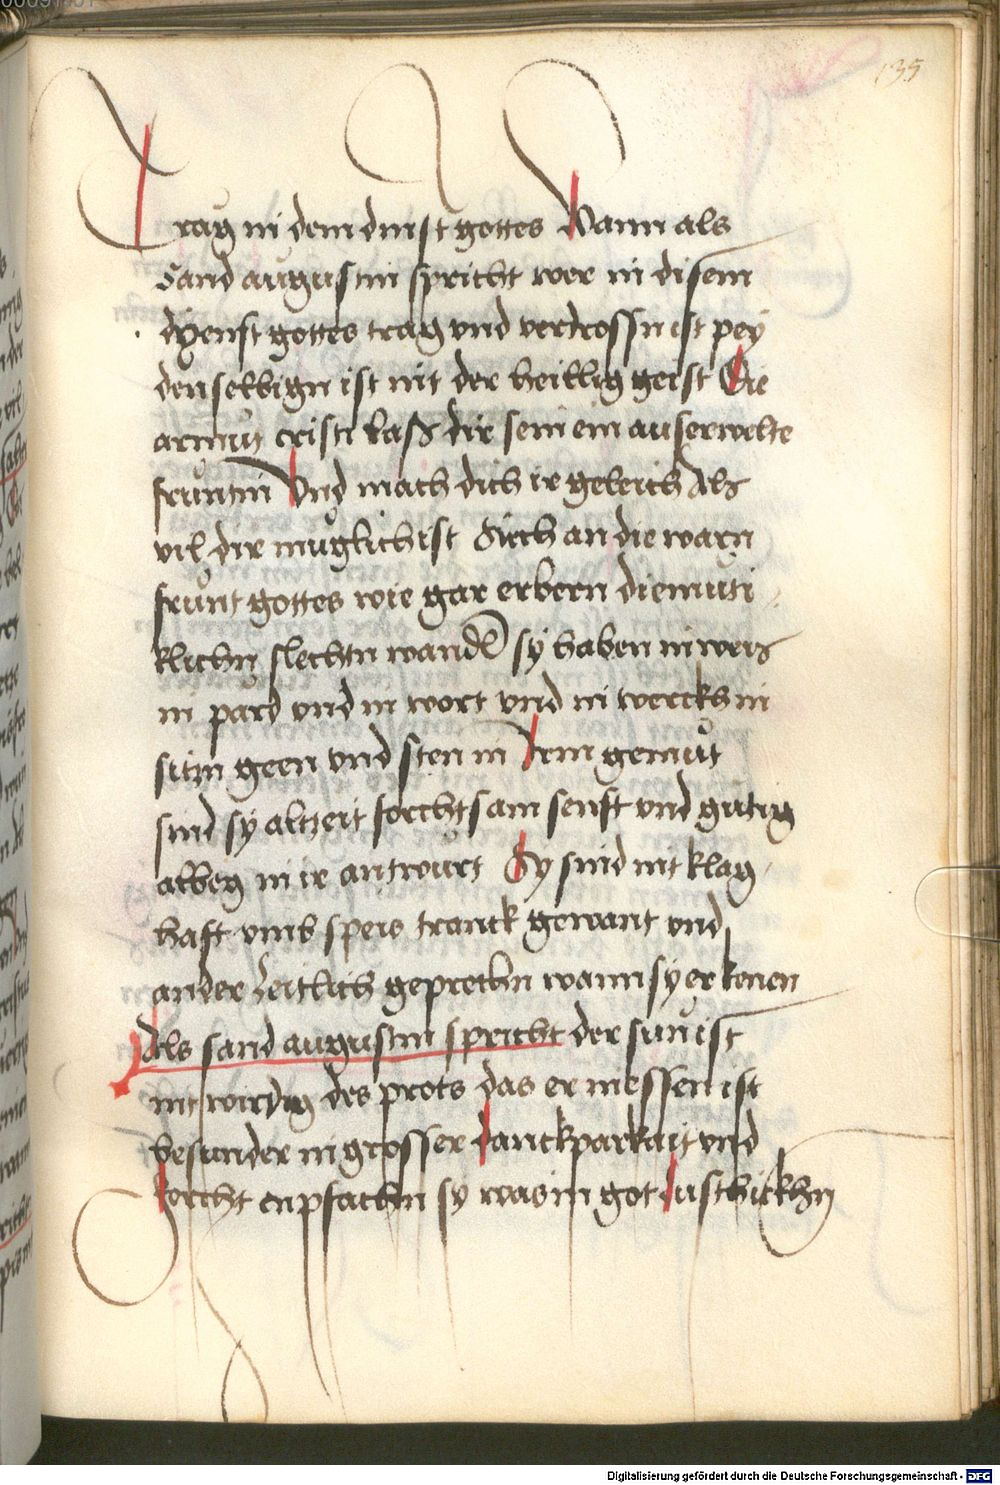 135
Trag in dem dinst gottes Wann als
Sand augustin spricht wer in disem
dyenst gottes trag vnd verdrossn ist pey
denselbign ist nit der heillig geist Die
armut cristi laß dir sein ein auserwelte
fruntin Vnd mach dich ir geleich Als
vil dir muglich ist Siech an die warn
frunt gottes wie gar erbern diemuti
klichn slechtn wandel sy haben in weis
in pard vnd in wort vnd in wercks in
sitzn geen vnd sten in Irem gemut
sind sy altzeit forchtsam senft vnd gutig
albeg in ir antwurt Sy sind nit klag
haft vmb speis tranck gewant vnd
ander zeitlich geprechn wann sy erkenen
Als sand augustin spricht der sun ist
nit wirdig des prots das er messen ist
besunder in grosser danckparkait vnd
forcht enpfachn sy was in got zuschickhn
Digitalisierung gefördert durch die Deutsche Forschungsgemeinschaft - DFG